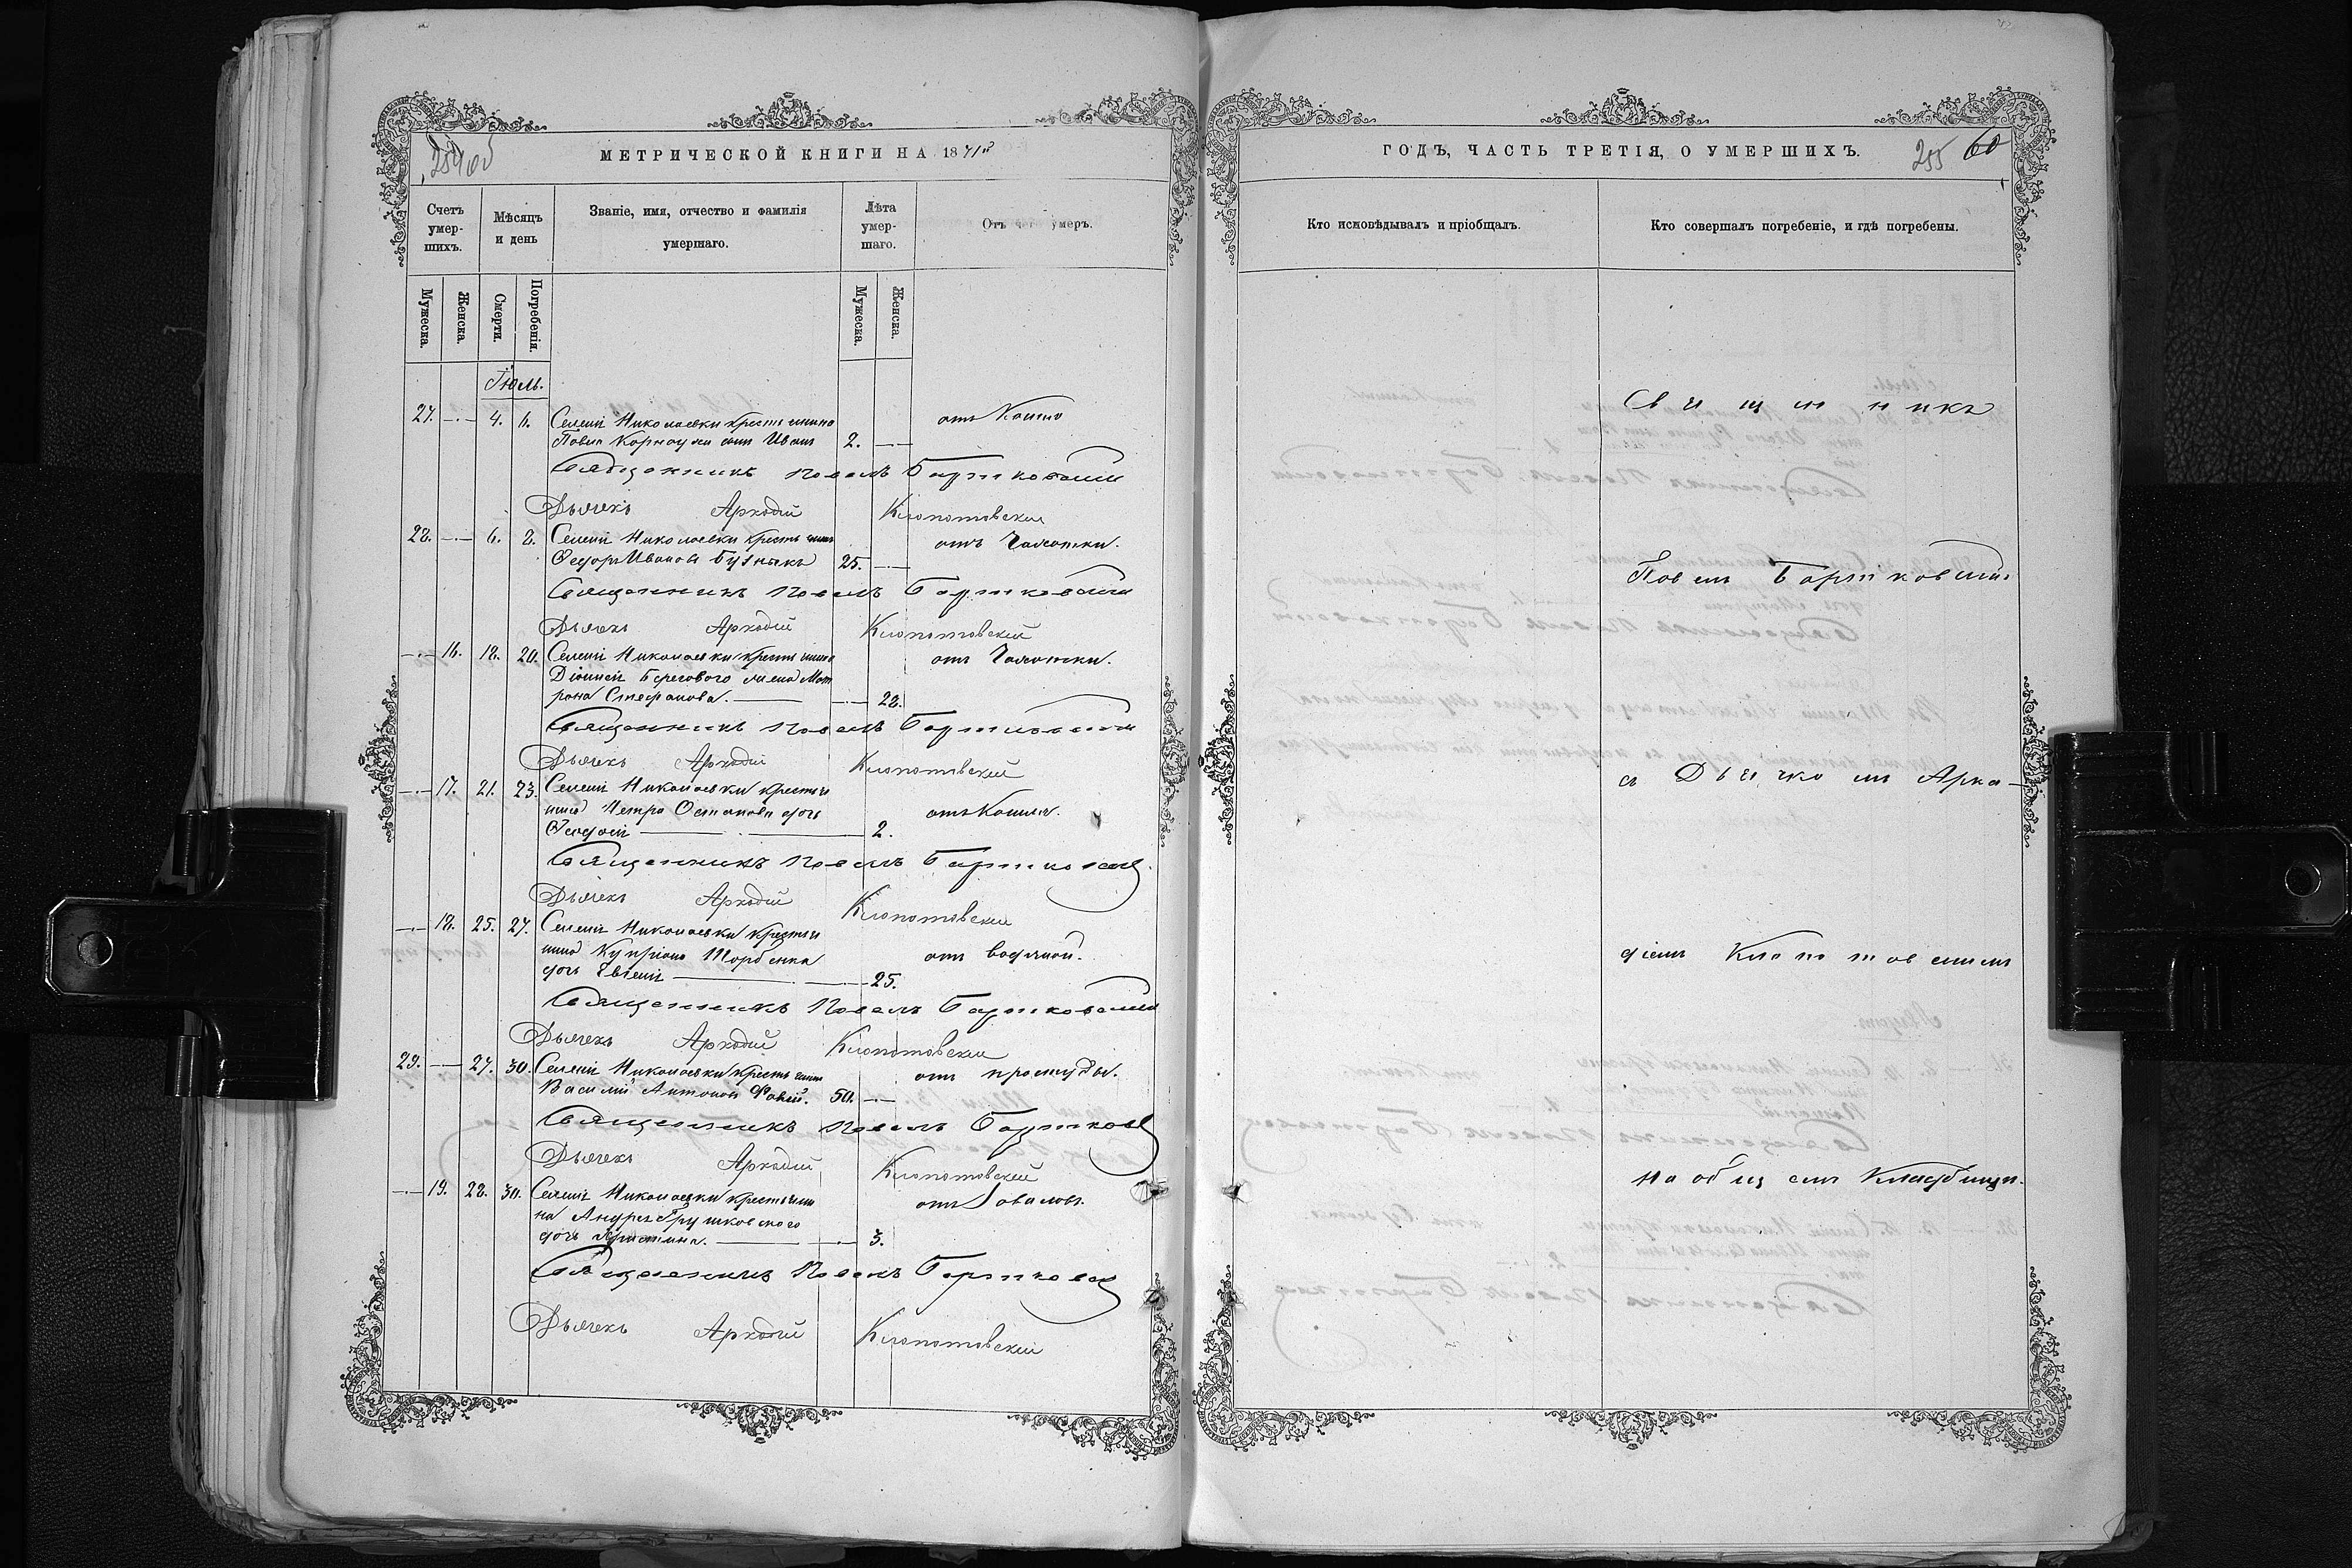 МЕТРИЧЕСКОЙ КНИГИ НА 1871й
Счетъ умер-шихъ.
Мѣсяцъ и день
Званіе, имя, отчество и фамилія умершаго.
Лѣта умер-шаго.
Отъ чего умеръ.
Мужеска.
Женска.
Смерти.
Погребенія.
Мужеска.
Женска.
Іюль.
27. 4. 6. Селеній Николаевки крестьянина отъ Кашлю
Павла сынъ Иванъ 2.
Священникъ Павелъ Бартковскій
Дьячекъ Аркадій Клопотовскій
28. 6. 8. Селеній Николаевки крестьянинъ отъ Чахотки.
Федоръ Ивановъ 25.
Священникъ Павелъ Бартковскій
Дьячекъ Аркадій Клопотовскій
16. 18. 20. Селеній Николаевки крестьянина отъ Чахотки.
Діонисія Берегового жена Мат
рона Стефанова. 28.
Священникъ Павелъ Бартковскій
Дьячекъ Аркадій Клопотовскій
17. 21. 23. Селеній Николаевки крестья
нина Петра дочь отъ Кашля.
Феодосія 2.
Священникъ Павелъ Бартковскій
Дьячекъ Аркадій Клопотовскій
18. 25. 27. Селеній Николаевки крестья
нина Купріана Щербенка отъ водяной.
дочь Евгенія 25.
Священникъ Павелъ Бартковскій
Дьячекъ Аркадій Клопотовскій
29. 27. 30. Селеній Николаевки крестьянинъ отъ простуды.
Василій Антоновъ 50.
Священникъ Павелъ Бартковс
Дьячекъ Аркадій Клопотовскій
19. 28. 30. Селеній Николаевки крестьяни
на Андрея Грушковского отъ
дочь Христина. 3.
Священникъ Павелъ Бартковс
Дьячекъ Аркадій Клопотовскій
ГОДЪ, ЧАСТЬ ТРЕТІЯ, О УМЕРШИХЪ.
255 60
Кто исповѣдывалъ и пріобщалъ.
Кто совершалъ погребеніе, и гдѣ погребены.
Священникъ
Павелъ Бартковскій
съ Дьячкомъ Арка-
діемъ Клопотовскимъ
на общемъ Кладбищи.